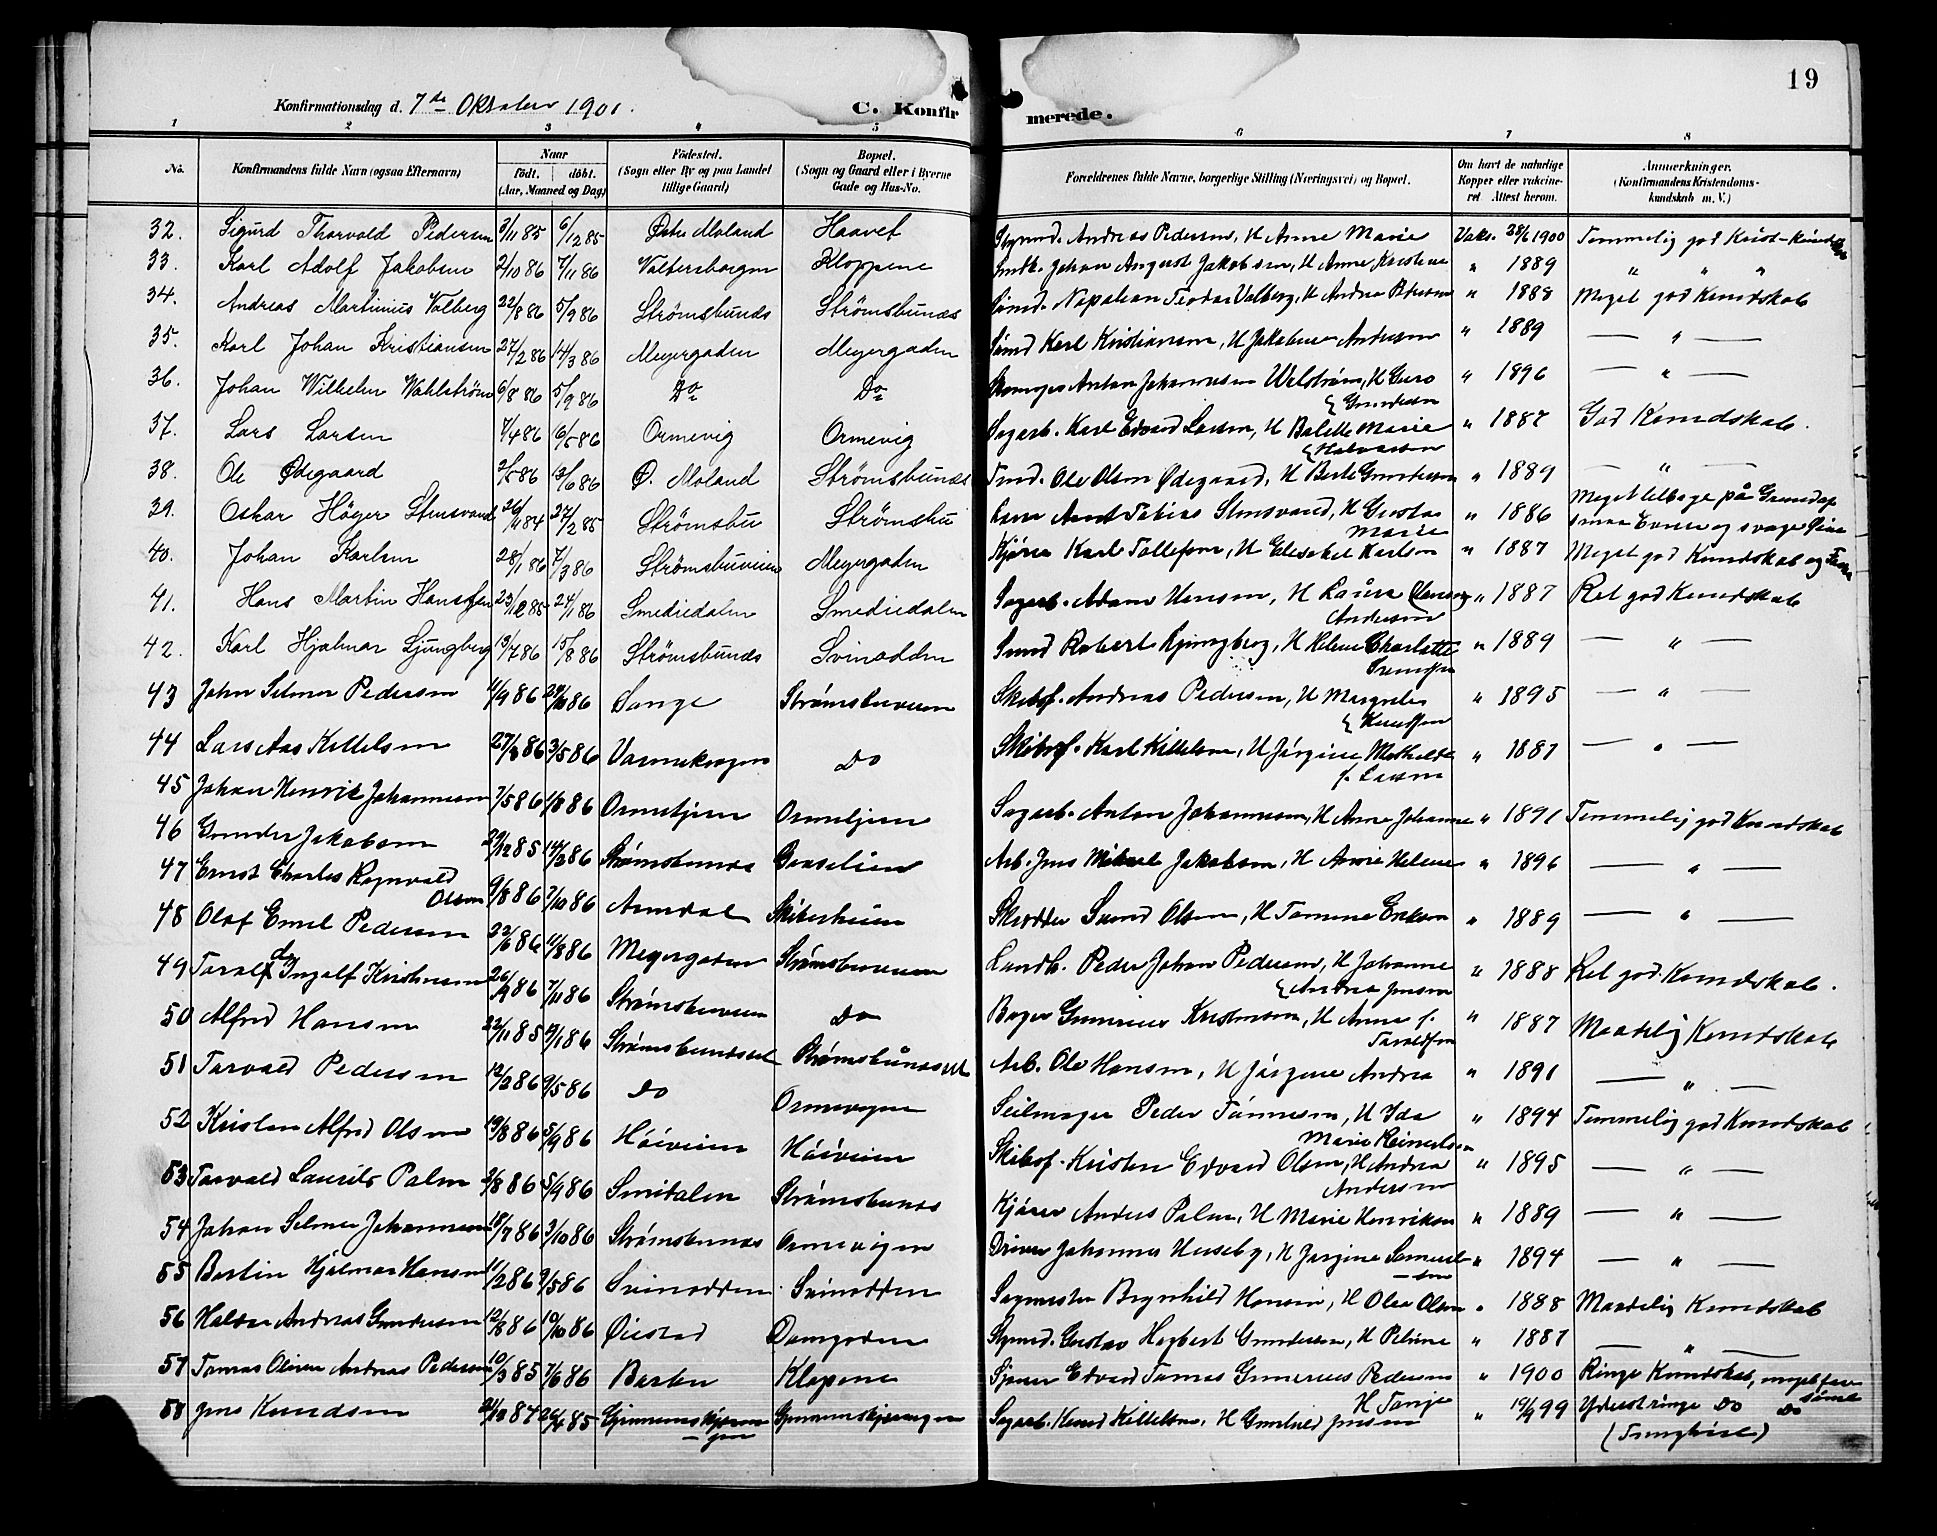 19
Konfirmationsdag d. 7de Oktober 1901.
C. Konfirmerede.
1 2 3 4 5 6 7 8
No. Konfirmandens fulde Navn (ogsaa Efternavn) Naar født. døbt. (Aar, Maaned og Dag) Fødested. (Sogn eller By og paa Landet tillige Gaard) Bopæl. (Sogn og Gaard eller i Byerne Gade og Hus-No. Forældrenes fulde Navne, borgerlige Stilling (Næringsvei) og Bopæl. Om havt de naturlige Kopper eller vakcineret. Attest herom. Anmærkninger. (Konfirmandens Kristendomskundskab m. V.)
32. Sigurd Thorvald Pedersen 3/11 85 6/12 85 Østre Moland Haavet Andreas Pedersen, H Anne Marie Vaks. 28/6 1900 Temmelig god Krist-kundskab
33. Karl Adolf Jakobsen 2/10 86 7/11 86 Kloppene Johan August Jakobsen, H Anne Kristine " 1889 " " "
34. Andreas Martinius Valberg 22/8 86 5/9 86 Strømsbunds Strømsbunds Sømd. Napolean Teodor Valberg, H Andrea Pedersen " 1888 Meget god Kundskab
35. Karl Johan Kristiansen 27/2 86 14/3 86 Meyergaden Meyergaden Sømd Karl Kristiansen, H Jakobine Andersen " 1889 — " —
36. Johan Wilhelm Wahlstrøm 6/8 86 5/9 86 Do Do Skomager Anton Johannesen Walstrøm, H Guro Gundersen " 1896 — " —
37. Lars Larsen 7/4 86 6/5 86 Ormevig Ormevig Sagarb. Karl Edvard Larsen, H Bolette Marie Halvorsen " 1887 God Kundskab.
38. Ole Ødegaard 2/5 86 13/6 86 Ø. Moland Strømsbunds Tmd. Ole Olsen Ødegaard, H Berte Gundersen " 1889 — " —
39. Oskar Høyer Stensvand 26/11 84 27/2 85 Strømsbu Strømsbu Tobias Stensvand, H Gusta Marie " 1886 Meget tilbage på Grund af smaa Evner og svage Øine
40. Johan Karlsen 28/1 86 7/3 86 Strømsbuveien Meyergaden Kjører Karl Tollefsen, H Elisabet Karlsen " 1887 Meget god Kundskab og
41. Hans Martin Hansen 23/12 85 24/1 86 Smediedalen Smediedalen Sagarb. Adam Hansen, H Laura Andersen " 1887 Ret god Kundskab
42. Karl Hjalmar Ljungberg 13/7 86 15/8 86 Strømsbunds Svinodden Robert Ljungberg, H Helene Charlotte Svendsen " 1889 — " —
43 John Selmer Pedersen 4/9 86 24/10 86 Songe Strømsbuveien Skibsf. Andreas Pedersen, H Margrete Knudsen " 1895 — " —
44 Lars Aas Kittelsen 27/3 86 3/5 86 Do Skibsf. Karl Kittelsen, H Jørgine Mathilde f. Larsen " 1887 — " —
45 Johan Henrik Johannesen 7/5 86 1/8 86 Ormetjern Ormetjern Sagarb. Anton Johannesen, H Anne Johanne " 1891 Temmelig god Kundskab
46 Gunder Jakobsen 29/12 85 14/3 86 Strømsbunds Arb. Jens Mikael Jakobsen, H Anne Helene " 1896 — " —
47 Ernst Charles Ragnvald Olsen 9/8 86 7/10 86 Arendal Skibsheien Skrædder Svend Olsen, H Tomine Eriksen " 1889 — " —
48 Olaf Emil Pedersen 22/6 86 11/8 86 Meyergaden Strømsbuveien Landh. Peder Johan Pedersen, H Johanne Andrea Jensen " 1888 Ret god Kundskab.
49 Taralf Ingolf Kristensen 26/9 86 7/11 86 Strømsbuveien Do Bager Gunerius Kristensen, H Anne f. Taraldsen " 1887 Maadelig Kundskab
50 Alfred Hansen 22/11 85 4/1 86 Strømsbundset Strømsbundset Arb. Ole Hansen, H Jørgine Andrea " 1891 — " —
51 Torvald Pedersen 12/2 86 9/5 86 Do Ormevigen Seilmager Peder Tønnesen, H Ida Marie Reinertsen " 1894 Temmelig god Kundskab
52 Kristen Alfred Olsen 19/8 86 5/9 86 Høiveien Høiveien Skibsf. Kristen Edvard Olsen, H Andrea Andersen " 1895 — " —
53 Torvald Laurits Palm 2/8 86 5/9 86 Smidalen Strømsbunds Kjører Anders Palm, H Marie Henriksen " 1889 — " —
54 Johan Selmer Johannesen 18/7 86 3/10 86 Strømsbunds Ormevigen Driver Johannes Husseby, H Jørgine Samuelsen " 1894 — " —
55 Bertin Hjalmar Hansen 11/2 86 9/5 86 Svinodden Svinodden Sagmester Brynhild Hansen, H Olea Olsen " 1888 Maadelig Kundskab
56 Haldor Andreas Gundersen 12/8 86 10/10 86 Øiestad Damgaden Gustav Hagbart Gundersen, H Petrine " 1887 — " —
57 Tomas Oliver Andreas Pedersen 10/3 85 7/6 86 Kloppene Edvard Tomas Gunerius Pedersen H Tanje " 1900 Ringe Kundskab, meget
58 Jens Knudsen 21/10 84 26/4 85 Gjennemskjæringen Gjennemskjæringen Sagarb. Knud Kittelsen, H Gunhild Jensen " 19/9 99 Yderst ringe Do Do
(Tunghørt)